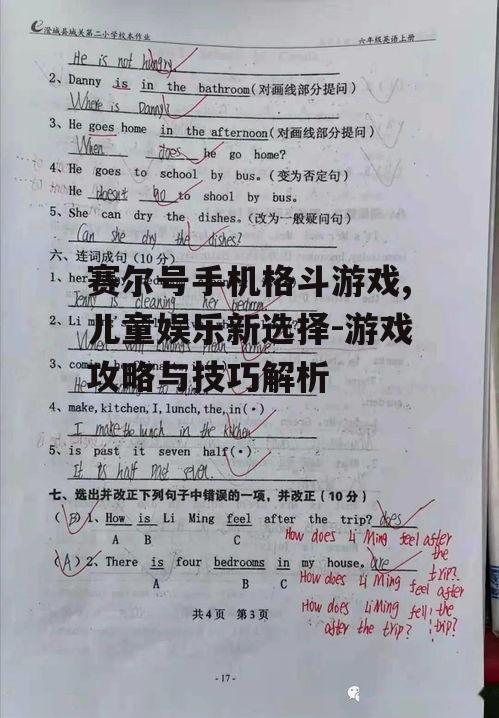 澄城县城关第二小学校本作业
六年级英语上册
He is not hungry
2、Danny is in the bathroom(对画线部分提问)
Where is Danny?
3、He goes home in the afternoon(对画线部分提问)
When does he go home?
4、He goes to school by bus.(变为否定句)
He doesn't go to shool by bus.
5、She can dry the dishes.(改为一般疑问句)
Can she dry the dishes?
六、连词成句(10分)
赛尔号手机格斗游戏,
儿童娱乐新选择-游戏
攻略与技巧解析
1、her
Jenny is cleaning her bedroom
2、Li
3、
4、make,kitchen,I,lunch,the,in(•)
I make the lunch in the kitchen
5、is past it seven half(•)
It is half past seven.
七、选出并改正下列句子中错误的一项,并改正(10分)
(B)1、How is Li Ming feel after the trip? does
A B C
How does Li Ming feel after the trip?
(A)2、There is four bedrooms in my house. are
A B C
How does Li Ming feel after the trip?
How does Li Ming fell after the trip?
共4页 第3页
-17-